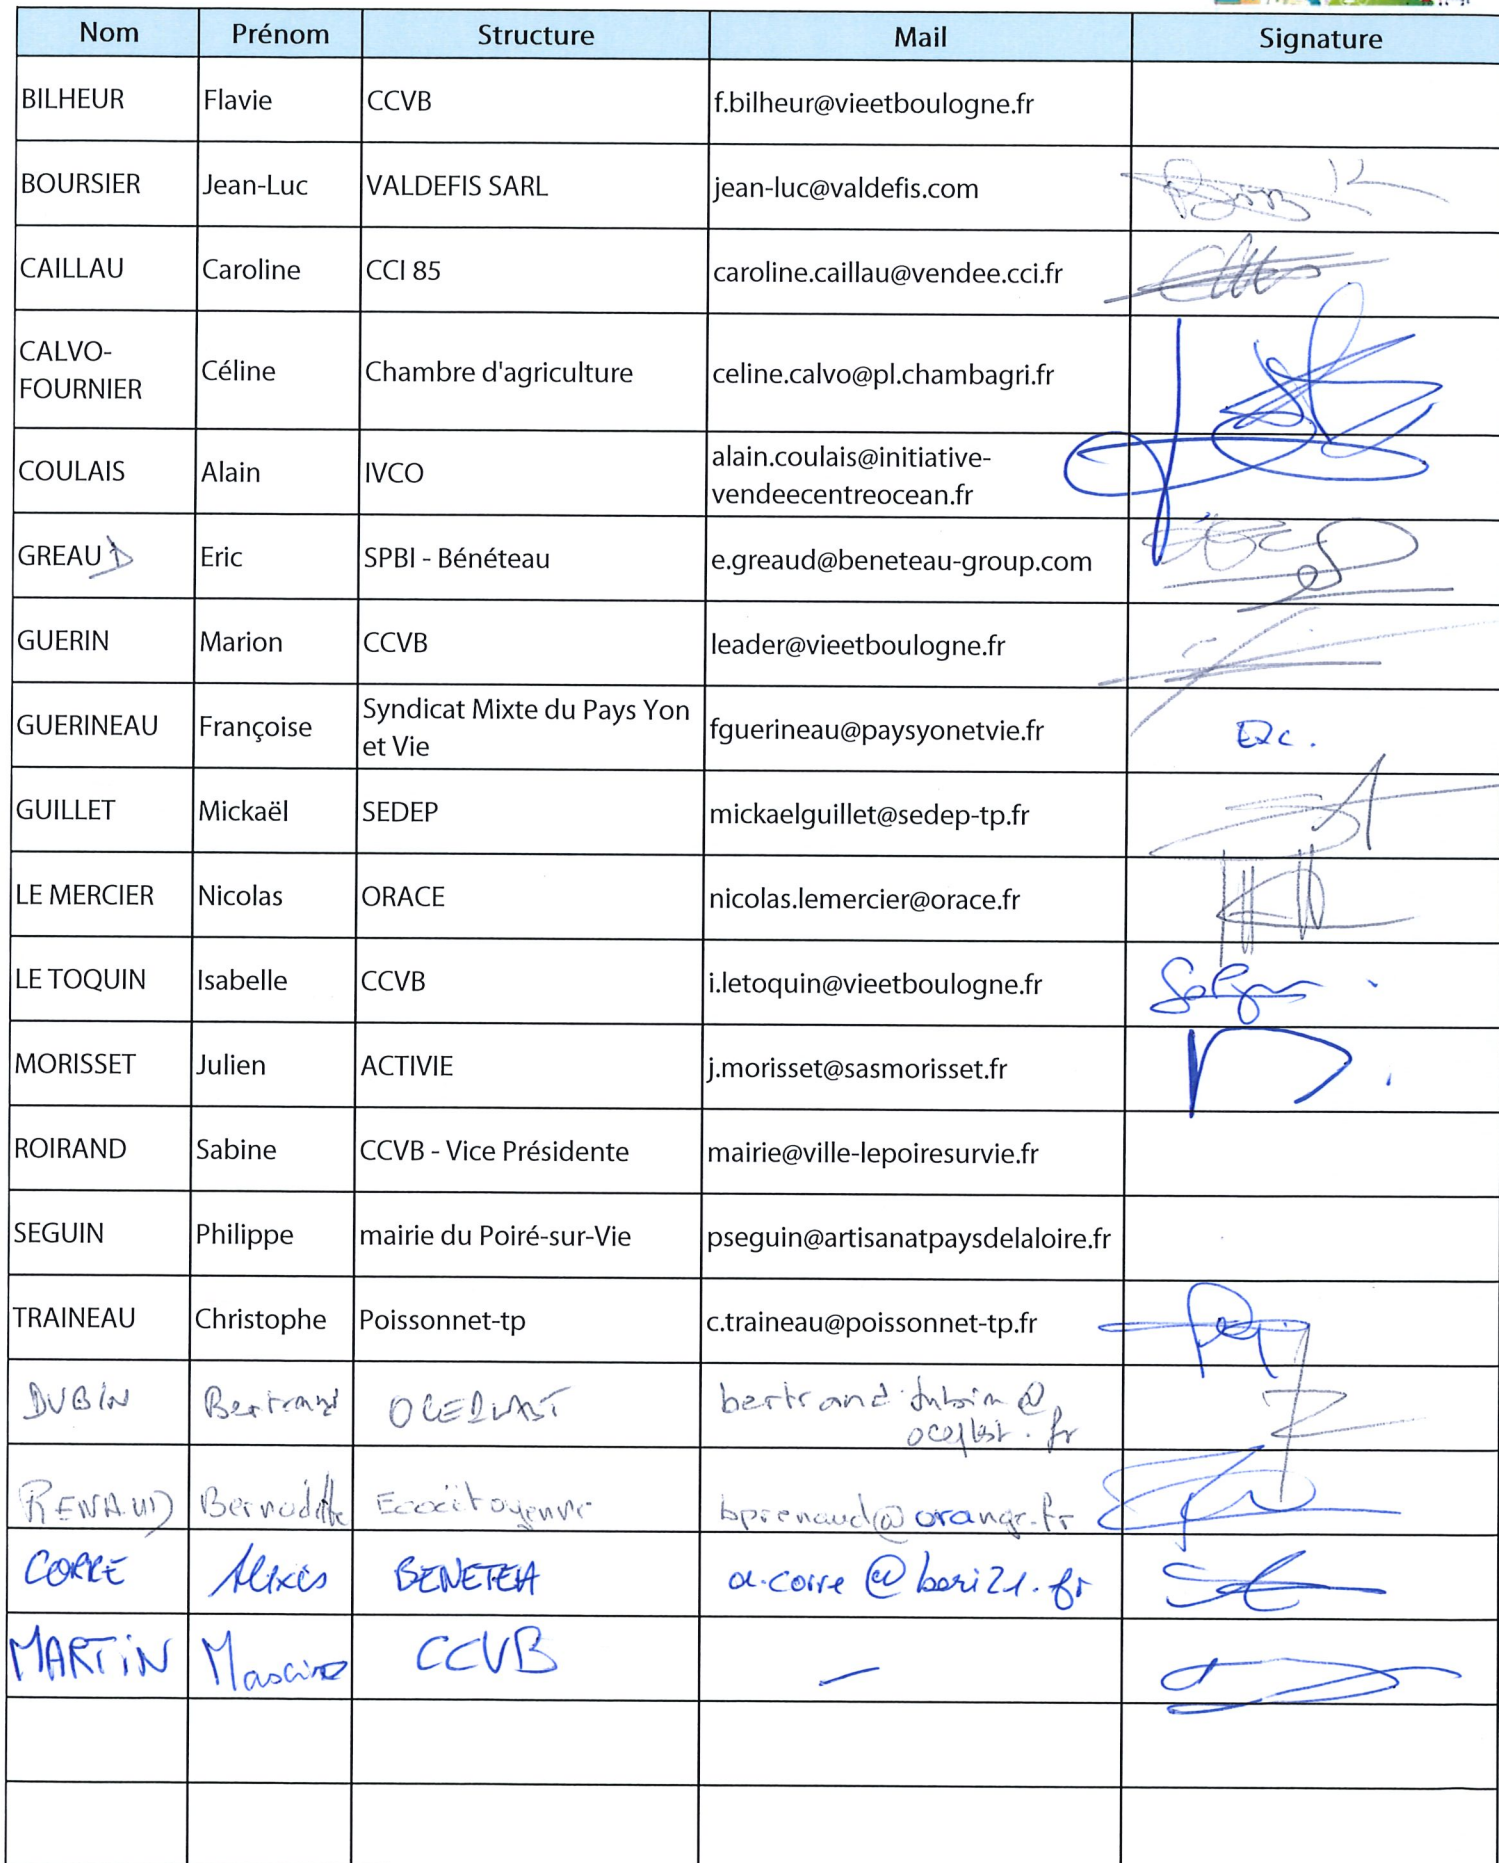 Nom Prénom Structure Mail Signature
BILHEUR Flavie CCVB f.bilheur@vieetboulogne.fr
BOURSIER Jean-Luc VALDEFIS SARL jean-luc@valdefis.com
CAILLAU Caroline CCI 85 caroline.caillau@vendee.cci.fr
CALVO-
FOURNIER Céline Chambre d'agriculture celine.calvo@pl.chambagri.fr
COULAIS Alain IVCO alain.coulais@initiative-
vendeecentreocean.fr
GREAUD Eric SPBI - Bénéteau e.greaud@beneteau-group.com
GUERIN Marion CCVB leader@vieetboulogne.fr
GUERINEAU Françoise Syndicat Mixte du Pays Yon
et Vie fguerineau@paysyonetvie.fr Exc.
GUILLET Mickaël SEDEP mickaelguillet@sedep-tp.fr
LE MERCIER Nicolas ORACE nicolas.lemercier@orace.fr
LE TOQUIN Isabelle CCVB i.letoquin@vieetboulogne.fr
MORISSET Julien ACTIVIE j.morisset@sasmorisset.fr
ROIRAND Sabine CCVB - Vice Présidente mairie@ville-lepoiresurvie.fr
SEGUIN Philippe mairie du Poiré-sur-Vie pseguin@artisanatpaysdelaloire.fr
TRAINEAU Christophe Poissonnet-tp c.traineau@poissonnet-tp.fr
DUBIN Bertrand
RENAUD Bernadette bprenaud@orange.fr
CORRE Alexis
MARTIN CCVB –